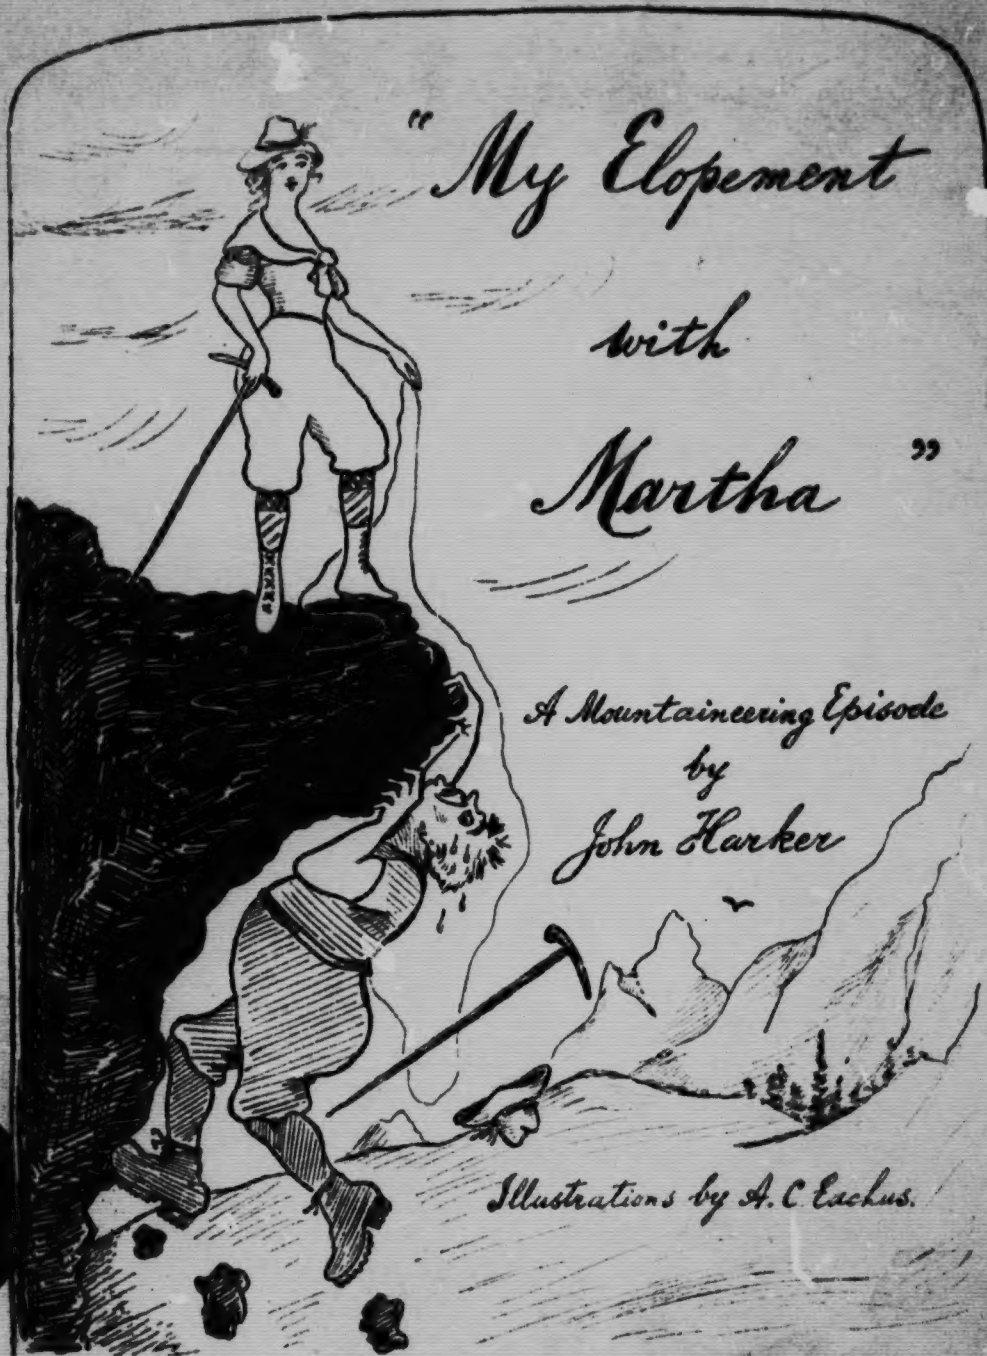 "My Elopement
with
Martha"
A Mountaineering Episode
by
John Harker
Illustrations by A. C. Eachus.